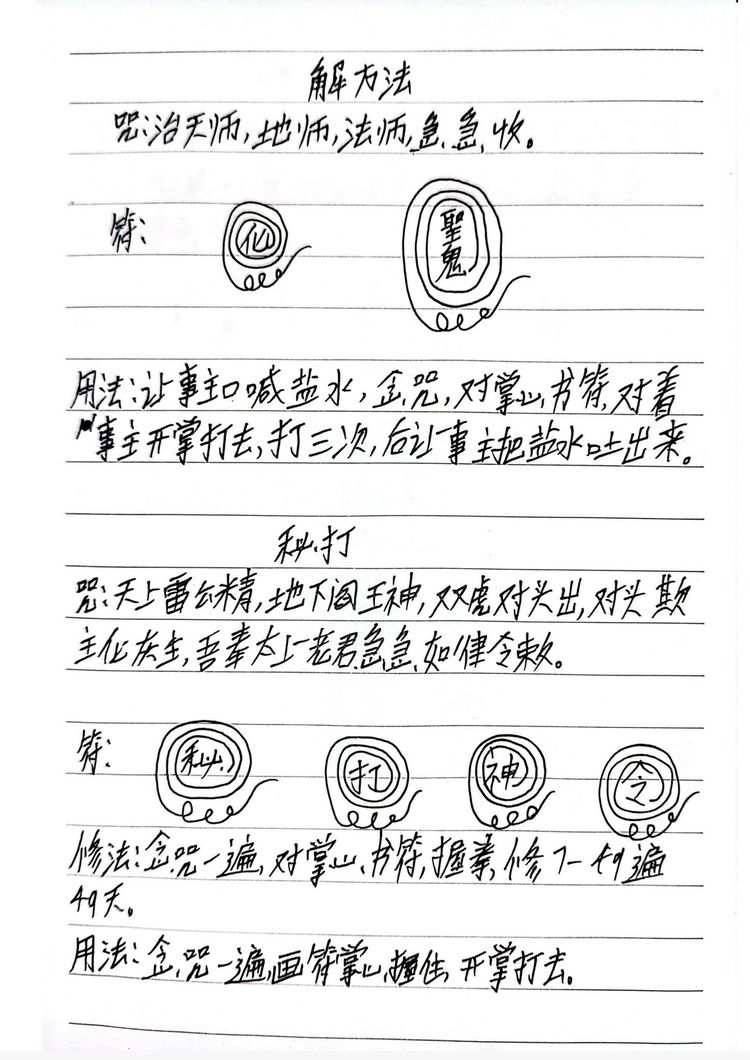 解方法
咒:治天师,地师,法师,急急收。
符:
仙 聖鬼
用法:让事主口喊盐水,念咒,对掌心书符,对着
事主开掌打去,打三次,后让事主把盐水吐出来。
秘打
咒:天上雷公精,地下阎王神,双虎对头出,对头欺
主化灰生,吾奉太上老君急急如律令敕。
符: 秘 打 神 令
修法:念咒一遍,对掌心书符,握拳,修7-49遍
49天。
用法:念咒一遍,画符掌心,握住,开掌打去。